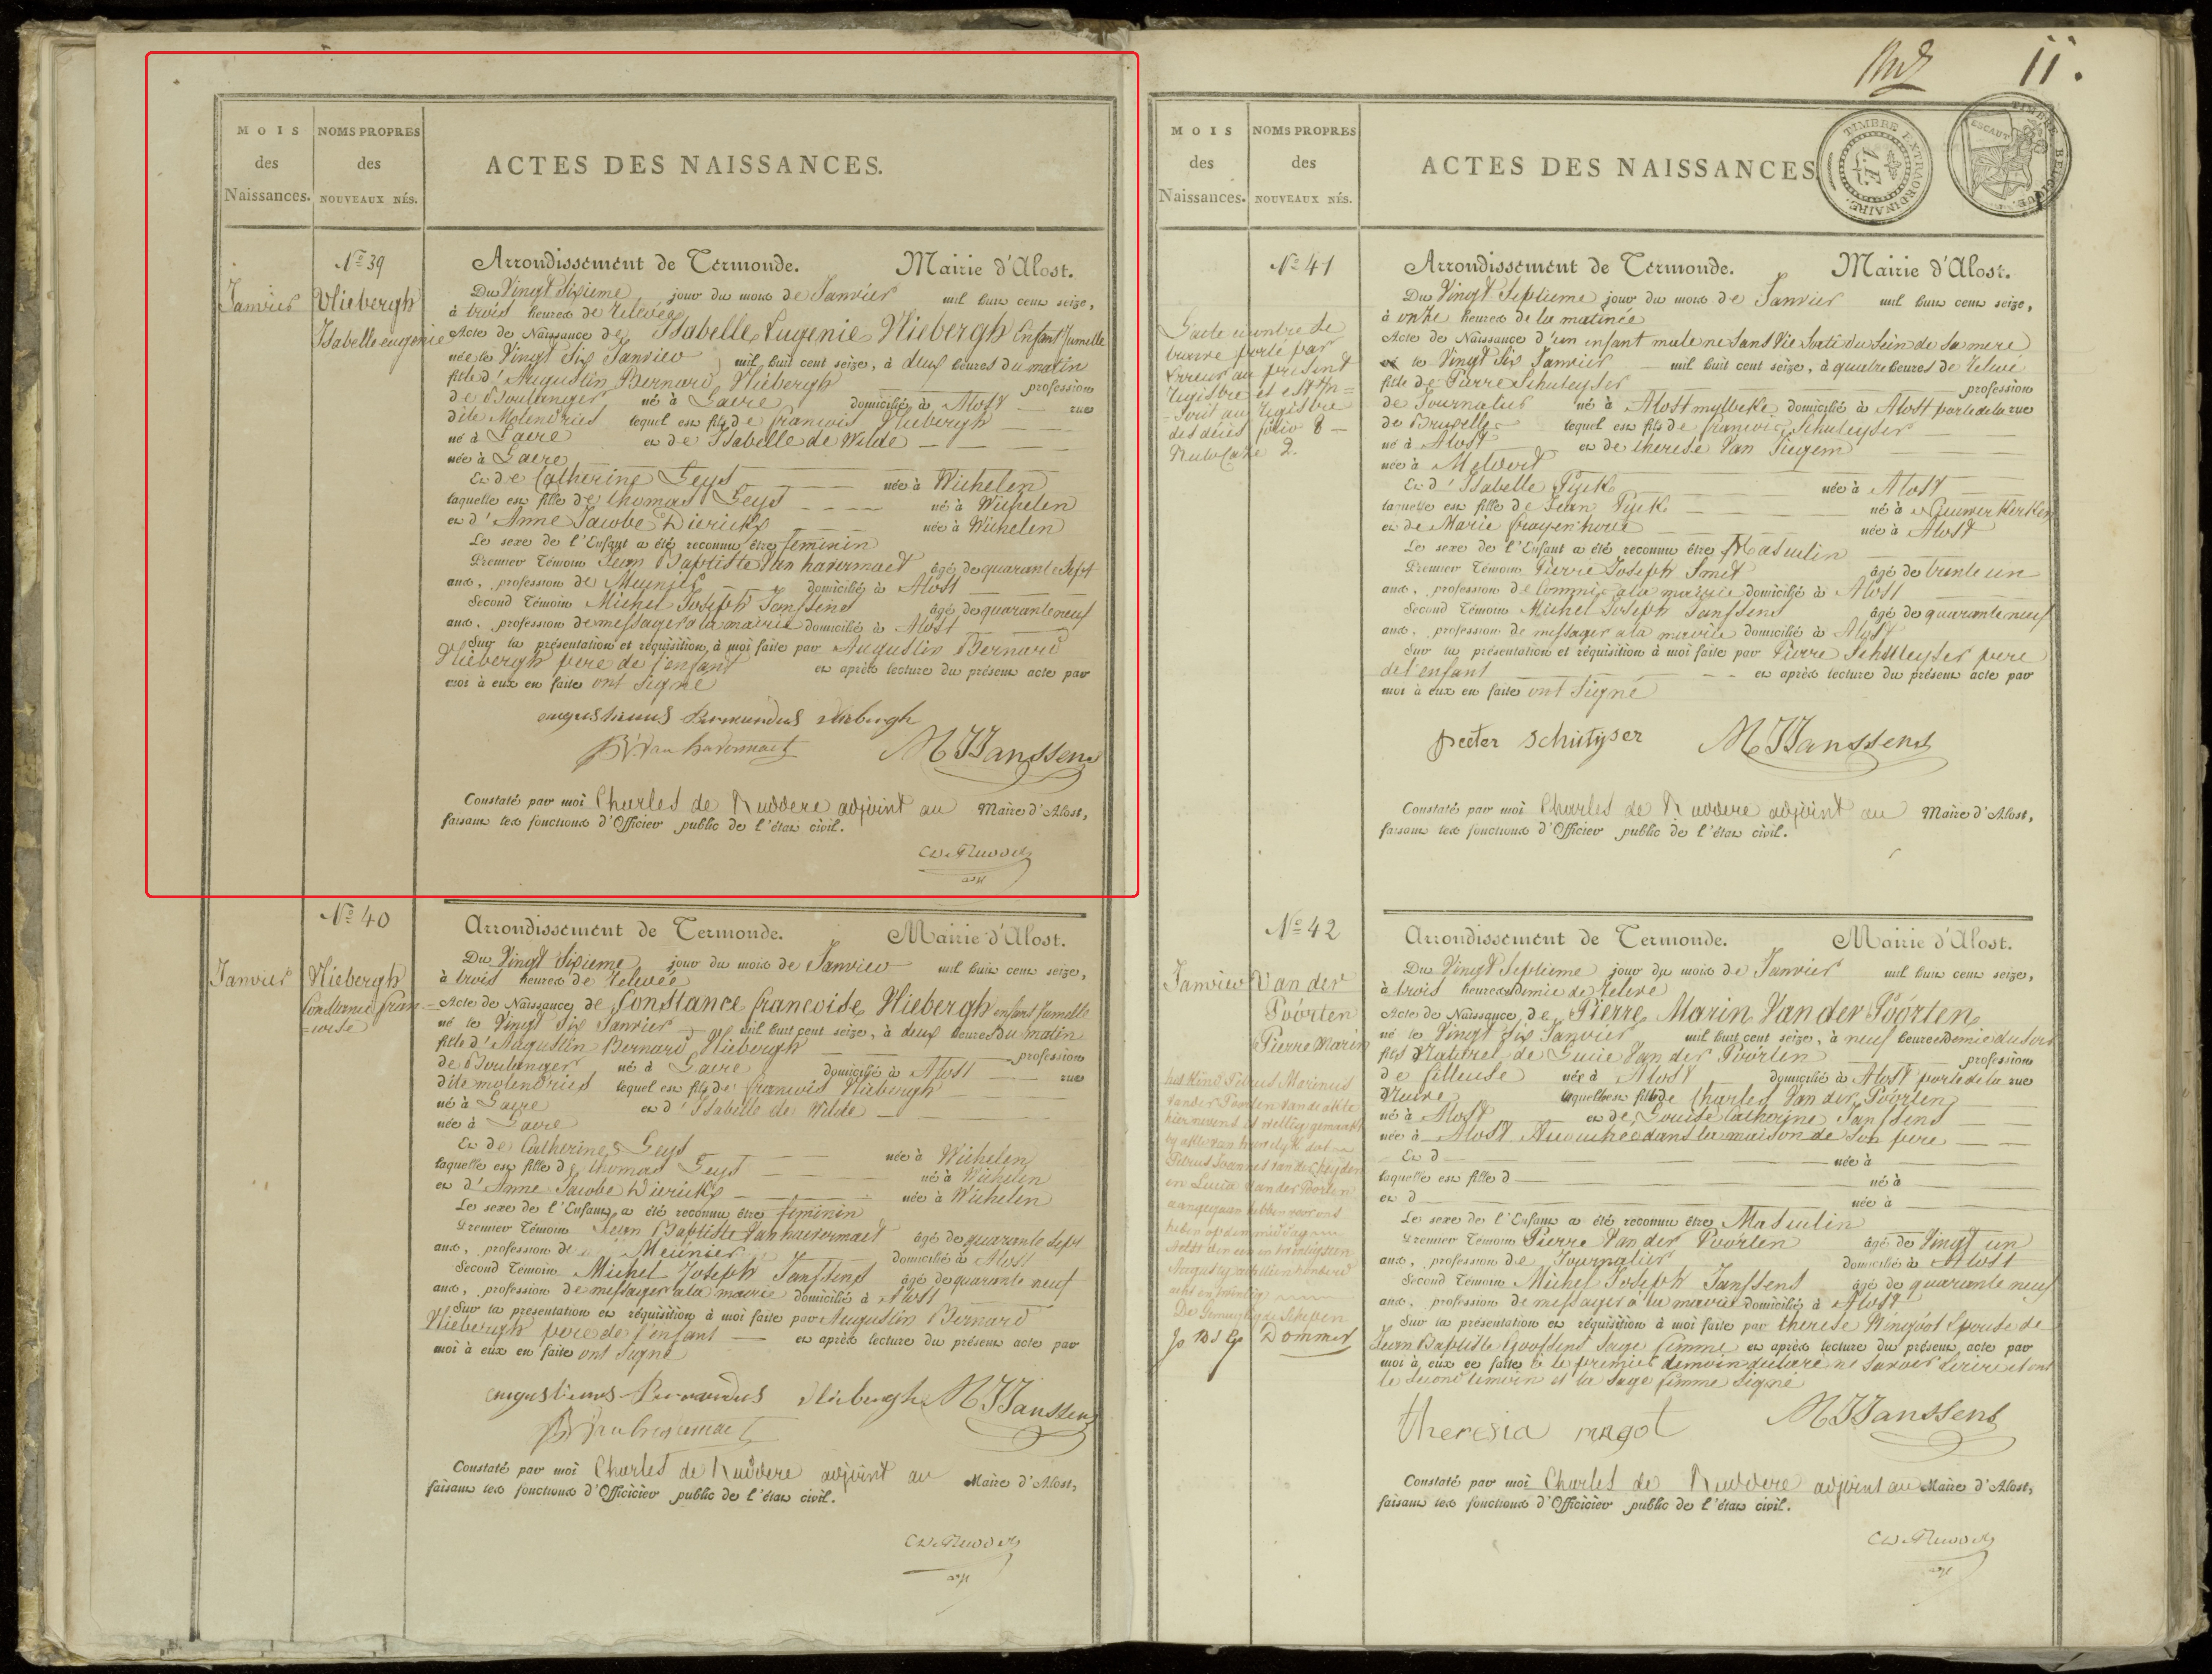 MOIS
des
Naissances.
NOMS PROPRES
des
NOUVEAUX NÉS.
ACTES DES NAISSANCES.
Nº 39
Janvier
Vliebergh
Isabelle eugenie
Arrondissement de Termonde. Mairie d'Alost.
Du Vingt Sixieme jour du mois de Janvier mil huit cent seize,
à trois heures de Relevée
Acte de Naissance de Isabelle Eugenie Vliebergh Enfant Jumelle
née le Vingt Six Janvier mil huit cent seize, à deux heures du matin
fille d'Augustin Bernard Vliebergh profession
de Boulanger né à Laere domicilié à Alost rue
dite Molendries lequel est fils de francois Vliebergh
né à Laere et de Isabelle de Wilde
née à Laere
Et de Catherine Geys née à Wichelen
laquelle est fille de thomas Geys né à Wichelen
et d'Anne Jacobe Diericks née à Wichelen
Le sexe de l'Enfant a été reconnu être feminin
Premier Témoin Jean Baptiste Van havermaet âgé de quarante Sept
ans, profession de Meunier domicilié à Alost
Second Témoin Michel Joseph Janssens âgé de quarante neuf
ans, profession de messager a la mairie domicilié à Alost
Sur la présentation et réquisition à moi faite par Augustin Bernard
Vliebergh pere de l'enfant et après lecture du présent acte par
moi à eux en faite ont signé
augustinus Bernardus vliebergh
JB Van havermaet MJJanssens
Constaté par moi Charles de Ruddere adjoint au Maire d'Alost,
faisant les fonctions d'Officier public de l'état civil.
Nº 40
Janvier
Vliebergh
Constance fran=
=coise
Arrondissement de Termonde. Mairie d'Alost.
Du Vingt Sixieme jour du mois de Janvier mil huit cent seize,
à trois heures de Relevée
Acte de Naissance de Constance francoise Vliebergh enfant Jumelle
né le Vingt Six Janvier mil huit cent seize, à deux heures du matin
fille d'Augustin Bernard Vliebergh profession
de Boulanger né à Laere domicilié à Alost rue
dite molendries lequel est fils de francois Vliebergh
né à Laere et d'Isabelle de Wilde
née à Laere
Et de Catherine Geys née à Wichelen
laquelle est fille de thomas Geys né à Wichelen
et d'Anne Jacobe Diericks née à Wichelen
Le sexe de l'Enfant a été reconnu être feminin
Premier Témoin Jean Baptiste Van havermaet âgé de quarante Sept
ans, profession de Meunier domicilié à Alost
Second Témoin Michel Joseph Janssens âgé de quarante neuf
ans, profession de messager a la mairie domicilié à Alost
Sur la présentation et réquisition à moi faite par Augustin Bernard
Vliebergh pere de l'enfant et après lecture du présent acte par
moi à eux en faite ont signé
augustinus Bernardus vliebergh MJJanssens
JB Van havermaet
Constaté par moi Charles de Ruddere adjoint au Maire d'Alost,
faisant les fonctions d'Officier public de l'état civil.
11.
MOIS
des
Naissances.
NOMS PROPRES
des
NOUVEAUX NÉS.
ACTES DES NAISSANCES
TIMBRE EXTRAORDINAIRE
A.E.
TIMBRE BELGIQUE.
ESCAUT
Nº 41
L'acte contre se
trouve porté par
Erreur au present
Registre et est In=
=scrit au Registre
des décès folio 8
Recto Case 2.
Arrondissement de Termonde. Mairie d'Alost.
Du Vingt Septieme jour du mois de Janvier mil huit cent seize,
à onze heures de la matinée
Acte de Naissance d'un enfant male ne Sans Vie Sorti du Sein de Sa mere
le Vingt Six Janvier mil huit cent seize, à quatre heures de Relevé
fils de Pierre Schuteyser profession
de Journalier né à Alost mylbeke domicilié à Alost porte de la rue
de Bruxelles lequel est fils de francois Schuteyser
né à Alost et de therese Van Tiegem
née à Meldert
Et d'Isabelle Pyck née à Alost
laquelle est fille de Jean Pyck né à Nieuwerkerken
et de Marie frayenhove née à Alost
Le sexe de l'Enfant a été reconnu être Masculin
Premier Témoin Pierre Joseph Smet âgé de trente un
ans, profession de Commis a la mairie domicilié à Alost
Second Témoin Michel Joseph Janssens âgé de quarante neuf
ans, profession de messager a la mairie domicilié à Alost
Sur la présentation et réquisition à moi faite par Pierre Schuteyser pere
de l'enfant et après lecture du présent acte par
moi à eux en faite ont signé
peeter schutyser MJJanssens
Constaté par moi Charles de Ruddere adjoint au Maire d'Alost,
faisant les fonctions d'Officier public de l'état civil.
Nº 42
Janvier
Van der
Poorten
Pierre Marin
het kind Petrus Marinus
vander Poorten van de akte
hiernevens is wettig gemaakt
by akte van huwelyk dat
Petrus Joannes van der heyden
en Lucia Van der Poorten
aangegaan hebben voor ons
heden op den middag
Aelst den een en twintigsten
Augusty achttien honderd
acht en twintig
De Gemagtigde Schepen
Dommer
Arrondissement de Termonde. Mairie d'Alost.
Du Vingt Septieme jour du mois de Janvier mil huit cent seize,
à trois heures demie de Relevé
Acte de Naissance de Pierre Marin Van der Poorten
né le Vingt Six Janvier mil huit cent seize, à neuf heures demie du soir
fils Naturel de Lucie Van der Poorten profession
de fileuse née à Alost domicilié à Alost porte de la rue
Neuve laquelle est fille de Charles Van der Poorten
né à Alost et de Louise Catherine Janssens
née à Alost Accouchée dans la maison de Son pere
Et d née à
laquelle est fille d né à
et d née à
Le sexe de l'Enfant a été reconnu être Masculin
Premier Témoin Pierre Van der Poorten âgé de Vingt un
ans, profession de Journalier domicilié à Alost
Second Témoin Michel Joseph Janssens âgé de quarante neuf
ans, profession de messager a la mairie domicilié à Alost
Sur la présentation et réquisition à moi faite par therese Ringoot Epouse de
Jean Baptiste Goossens Sage femme et après lecture du présent acte par
moi à eux en faite le premier temoin declare ne Savoir Ecrire et ont
le Second temoin et la Sage femme Signé
theresia ringot MJJanssens
Constaté par moi Charles de Ruddere adjoint au Maire d'Alost,
faisant les fonctions d'Officier public de l'état civil.